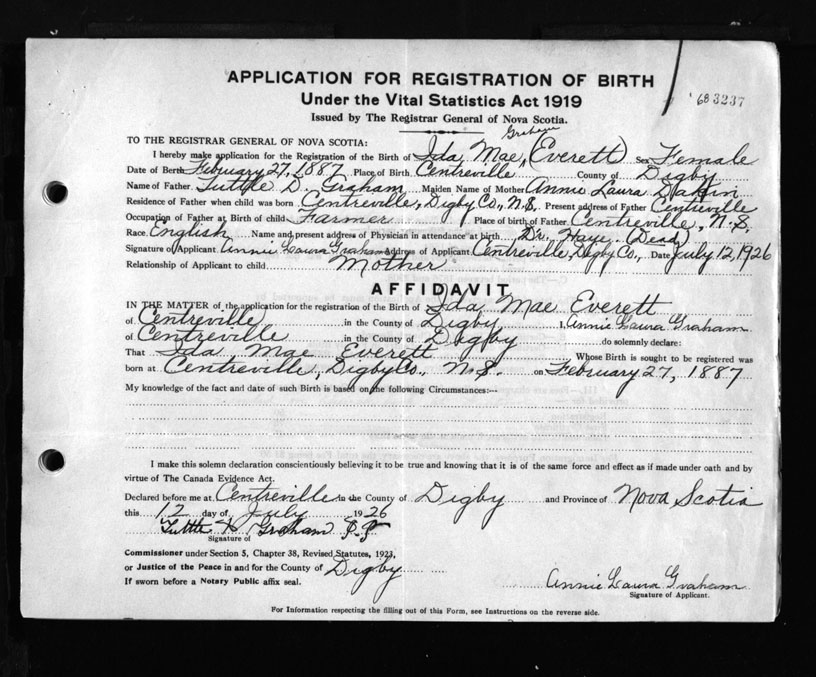 APPLICATION FOR REGISTRATION OF BIRTH
Under the Vital Statistics Act 1919
68 3237
Issued by The Registrar General of Nova Scotia.
Graham
TO THE REGISTRAR GENERAL OF NOVA SCOTIA:
I hereby make application for the Registration of the Birth of Ida Mae (Everett) Sex Female
Date of Birth February 27, 1887 Place of Birth Centreville County of Digby
Name of Father Tuttle D. Graham Maiden Name of Mother Annie Laura Dakin
Residence of Father when child was born Centreville, Digby Co., N.S. Present address of Father Centreville
Occupation of Father at Birth of child Farmer Place of birth of Father Centreville, N.S.
Race English Name and present address of Physician in attendance at birth Dr. Haye. (Dead)
Signature of Applicant Annie Laura Graham Address of Applicant Centreville, Digby Co., Date July 12, 1926
Relationship of Applicant to child Mother
AFFIDAVIT
IN THE MATTER of the application for the registration of the Birth of Ida Mae Everett
of Centreville in the County of Digby I, Annie Laura Graham
of Centreville in the County of Digby do solemnly declare:
That Ida Mae Everett Whose Birth is sought to be registered was
born at Centreville, Digby Co., N.S. on February 27, 1887
My knowledge of the fact and date of such Birth is based on the following Circumstances:—
I make this solemn declaration conscientiously believing it to be true and knowing that it is of the same force and effect as if made under oath and by
virtue of The Canada Evidence Act.
Declared before me at Centreville in the County of Digby and Province of Nova Scotia
this 12 day of July 1926
Tuttle Graham J.P.
Signature of
Commissioner under Section 5, Chapter 38, Revised Statutes, 1923,
or Justice of the Peace in and for the County of Digby
If sworn before a Notary Public affix seal.
Annie Laura Graham
Signature of Applicant.
For Information respecting the filling out of this Form, see Instructions on the reverse side.